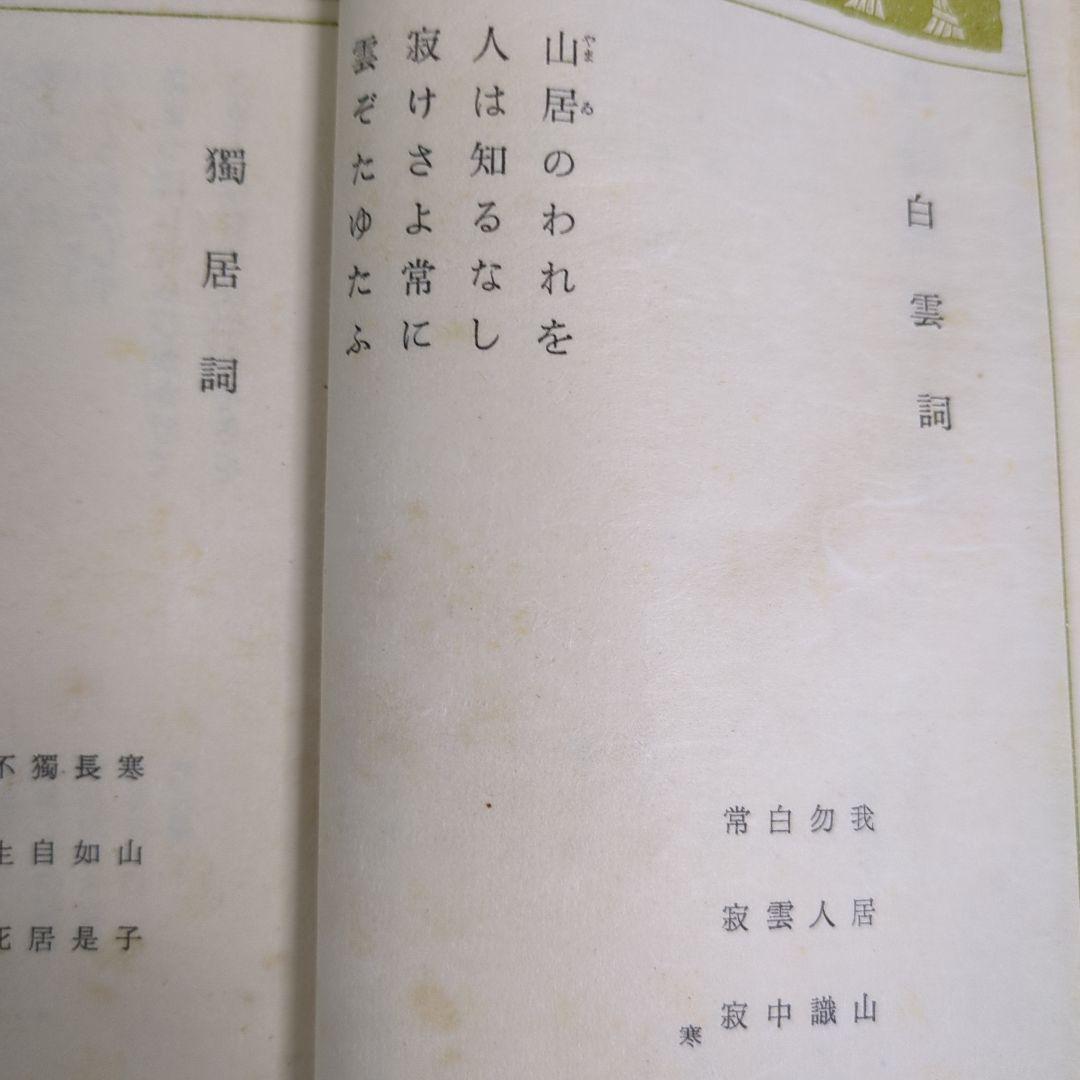 白雲詞
我居山
勿人識
白雲中
常寂寂
寒
山居のわれを
やまゐ
人は知るなし
寂けさよ常に
雲ぞたゆたふ
獨居詞
寒山子
長如是
獨自居
不生死